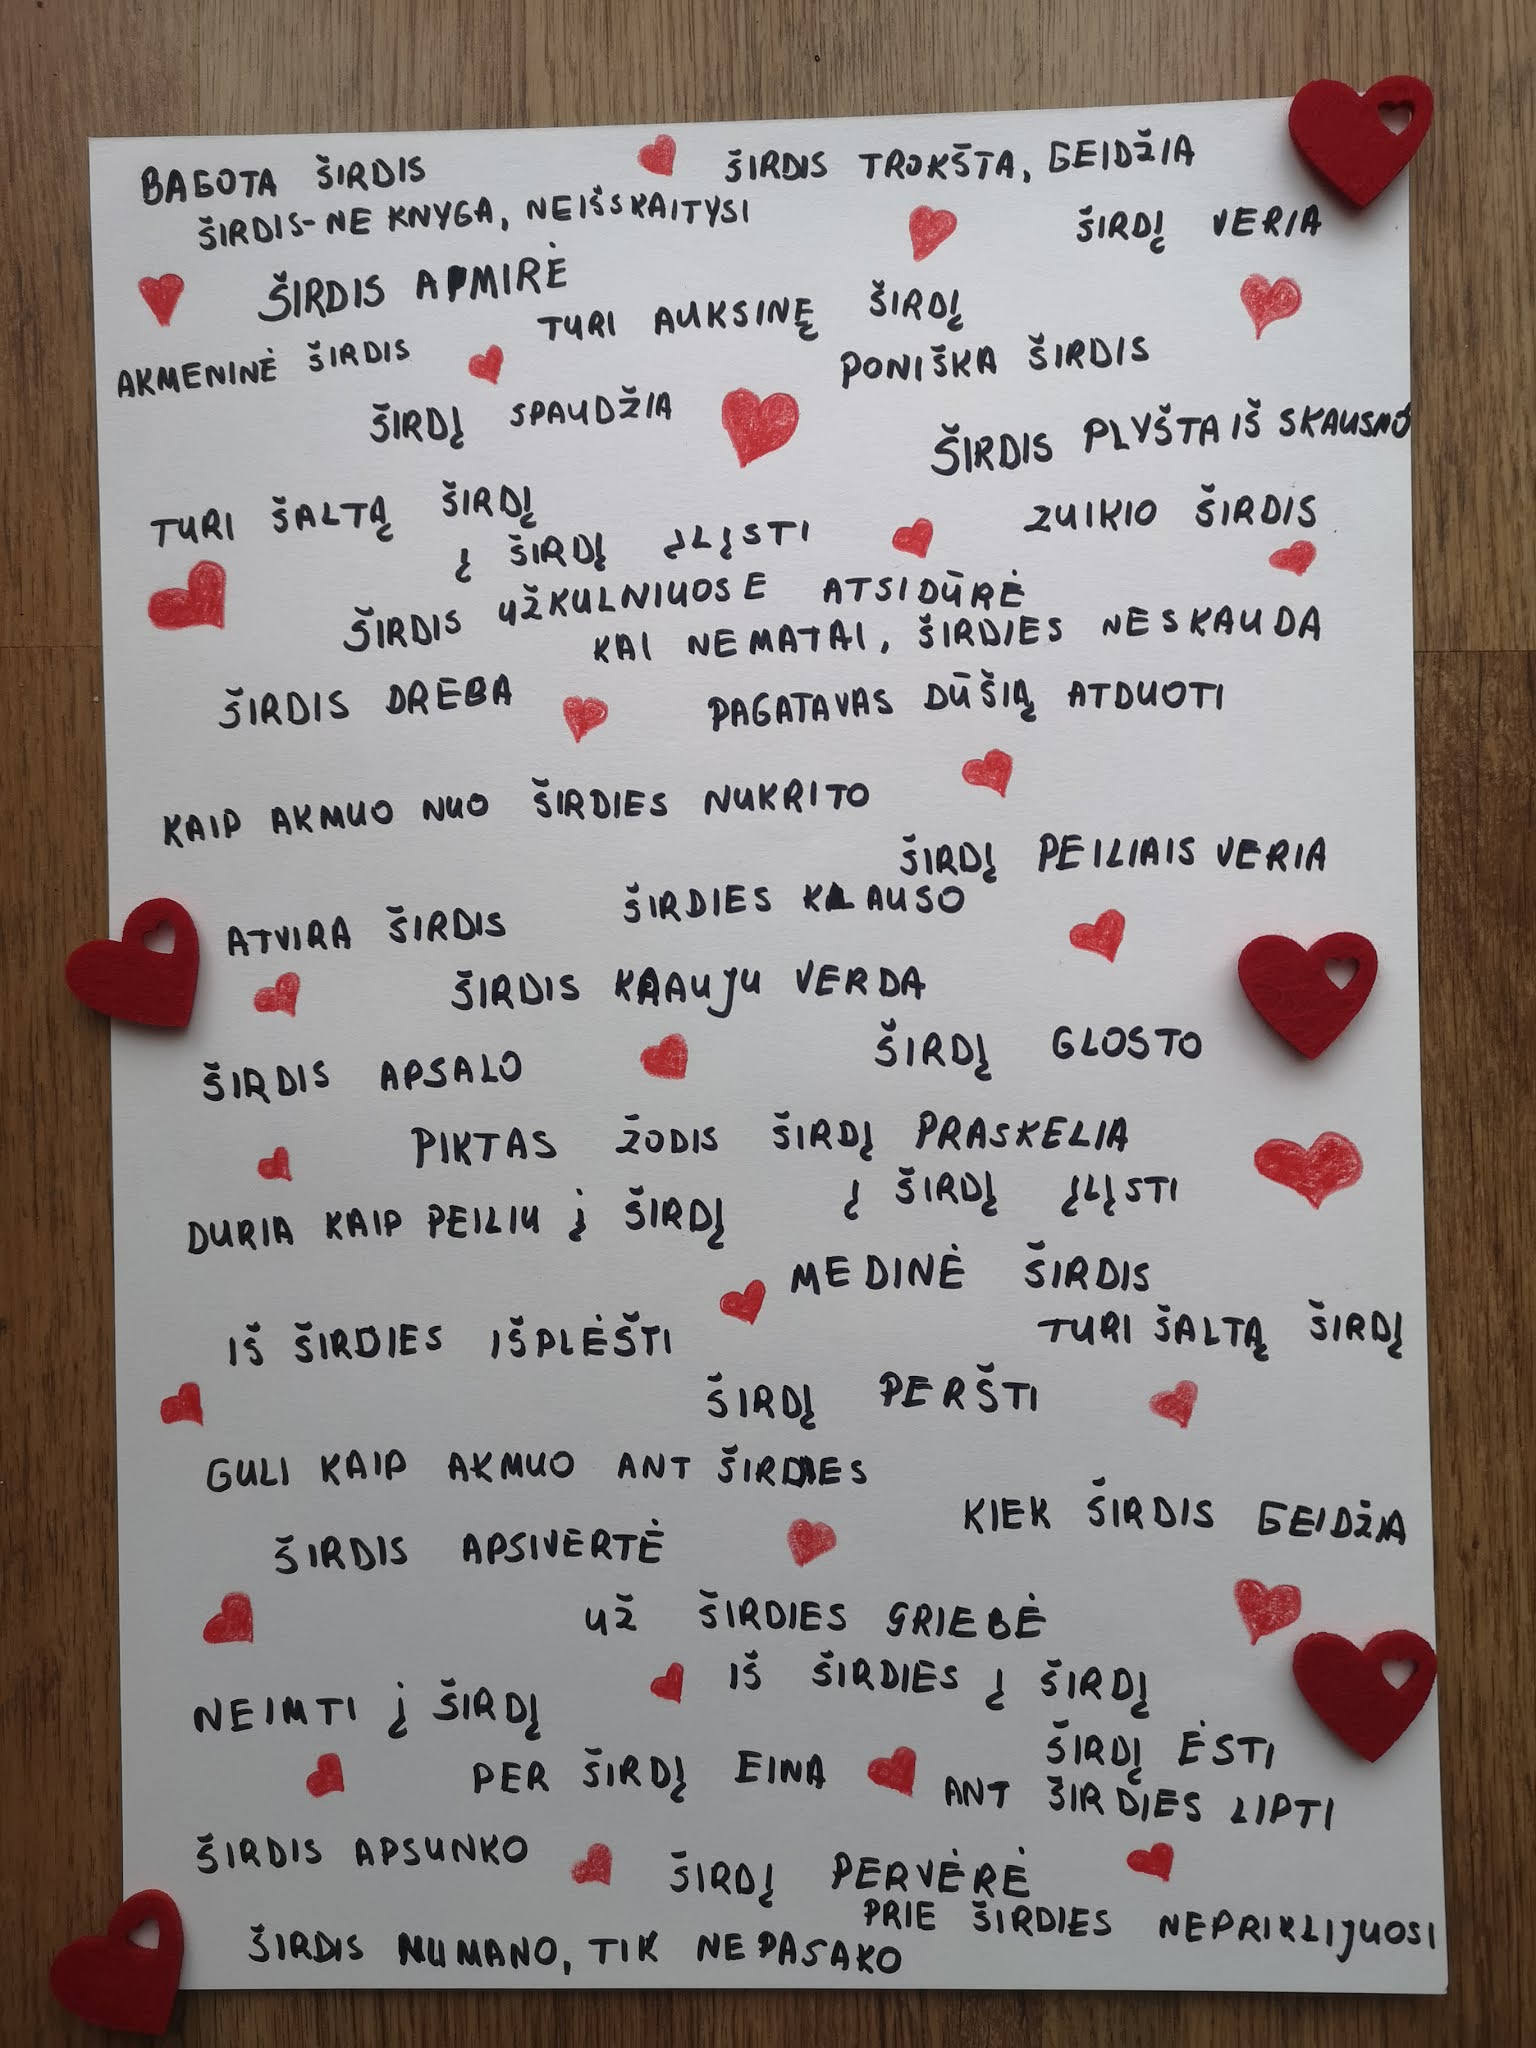 BAGOTA ŠIRDIS
ŠIRDIS TROKŠTA, GEIDŽIA
ŠIRDIS-NE KNYGA, NEIŠSKAITYSI
ŠIRDĮ VERIA
ŠIRDIS APMIRĖ
TURI AUKSINĘ ŠIRDĮ
AKMENINĖ ŠIRDIS
PONIŠKA ŠIRDIS
ŠIRDĮ SPAUDŽIA
ŠIRDIS PLYŠTA IŠ SKAUSMO
TURI ŠALTĄ ŠIRDĮ
ZUIKIO ŠIRDIS
Į ŠIRDĮ ĮLĮSTI
ŠIRDIS UŽKULNIUOSE ATSIDŪRĖ
KAI NEMATAI, ŠIRDIES NESKAUDA
ŠIRDIS DREBA
PAGATAVAS DŪŠIĄ ATDUOTI
KAIP AKMUO NUO ŠIRDIES NUKRITO
ŠIRDĮ PEILIAIS VERIA
ATVIRA ŠIRDIS
ŠIRDIES KLAUSO
ŠIRDIS KRAUJU VERDA
ŠIRDIS APSALO
ŠIRDĮ GLOSTO
PIKTAS ŽODIS ŠIRDĮ PRASKELIA
DURIA KAIP PEILIU Į ŠIRDĮ
Į ŠIRDĮ ĮLĮSTI
MEDINĖ ŠIRDIS
IŠ ŠIRDIES IŠPLĖŠTI
TURI ŠALTĄ ŠIRDĮ
ŠIRDĮ PERŠTI
GULI KAIP AKMUO ANT ŠIRDIES
KIEK ŠIRDIS GEIDŽIA
ŠIRDIS APSIVERTĖ
UŽ ŠIRDIES GRIEBĖ
IŠ ŠIRDIES Į ŠIRDĮ
NEIMTI Į ŠIRDĮ
ŠIRDĮ ĖSTI
PER ŠIRDĮ EINA
ANT ŠIRDIES LIPTI
ŠIRDIS APSUNKO
ŠIRDĮ PERVĖRĖ
PRIE ŠIRDIES NEPRIKLIJUOSI
ŠIRDIS NUMANO, TIK NEPASAKO